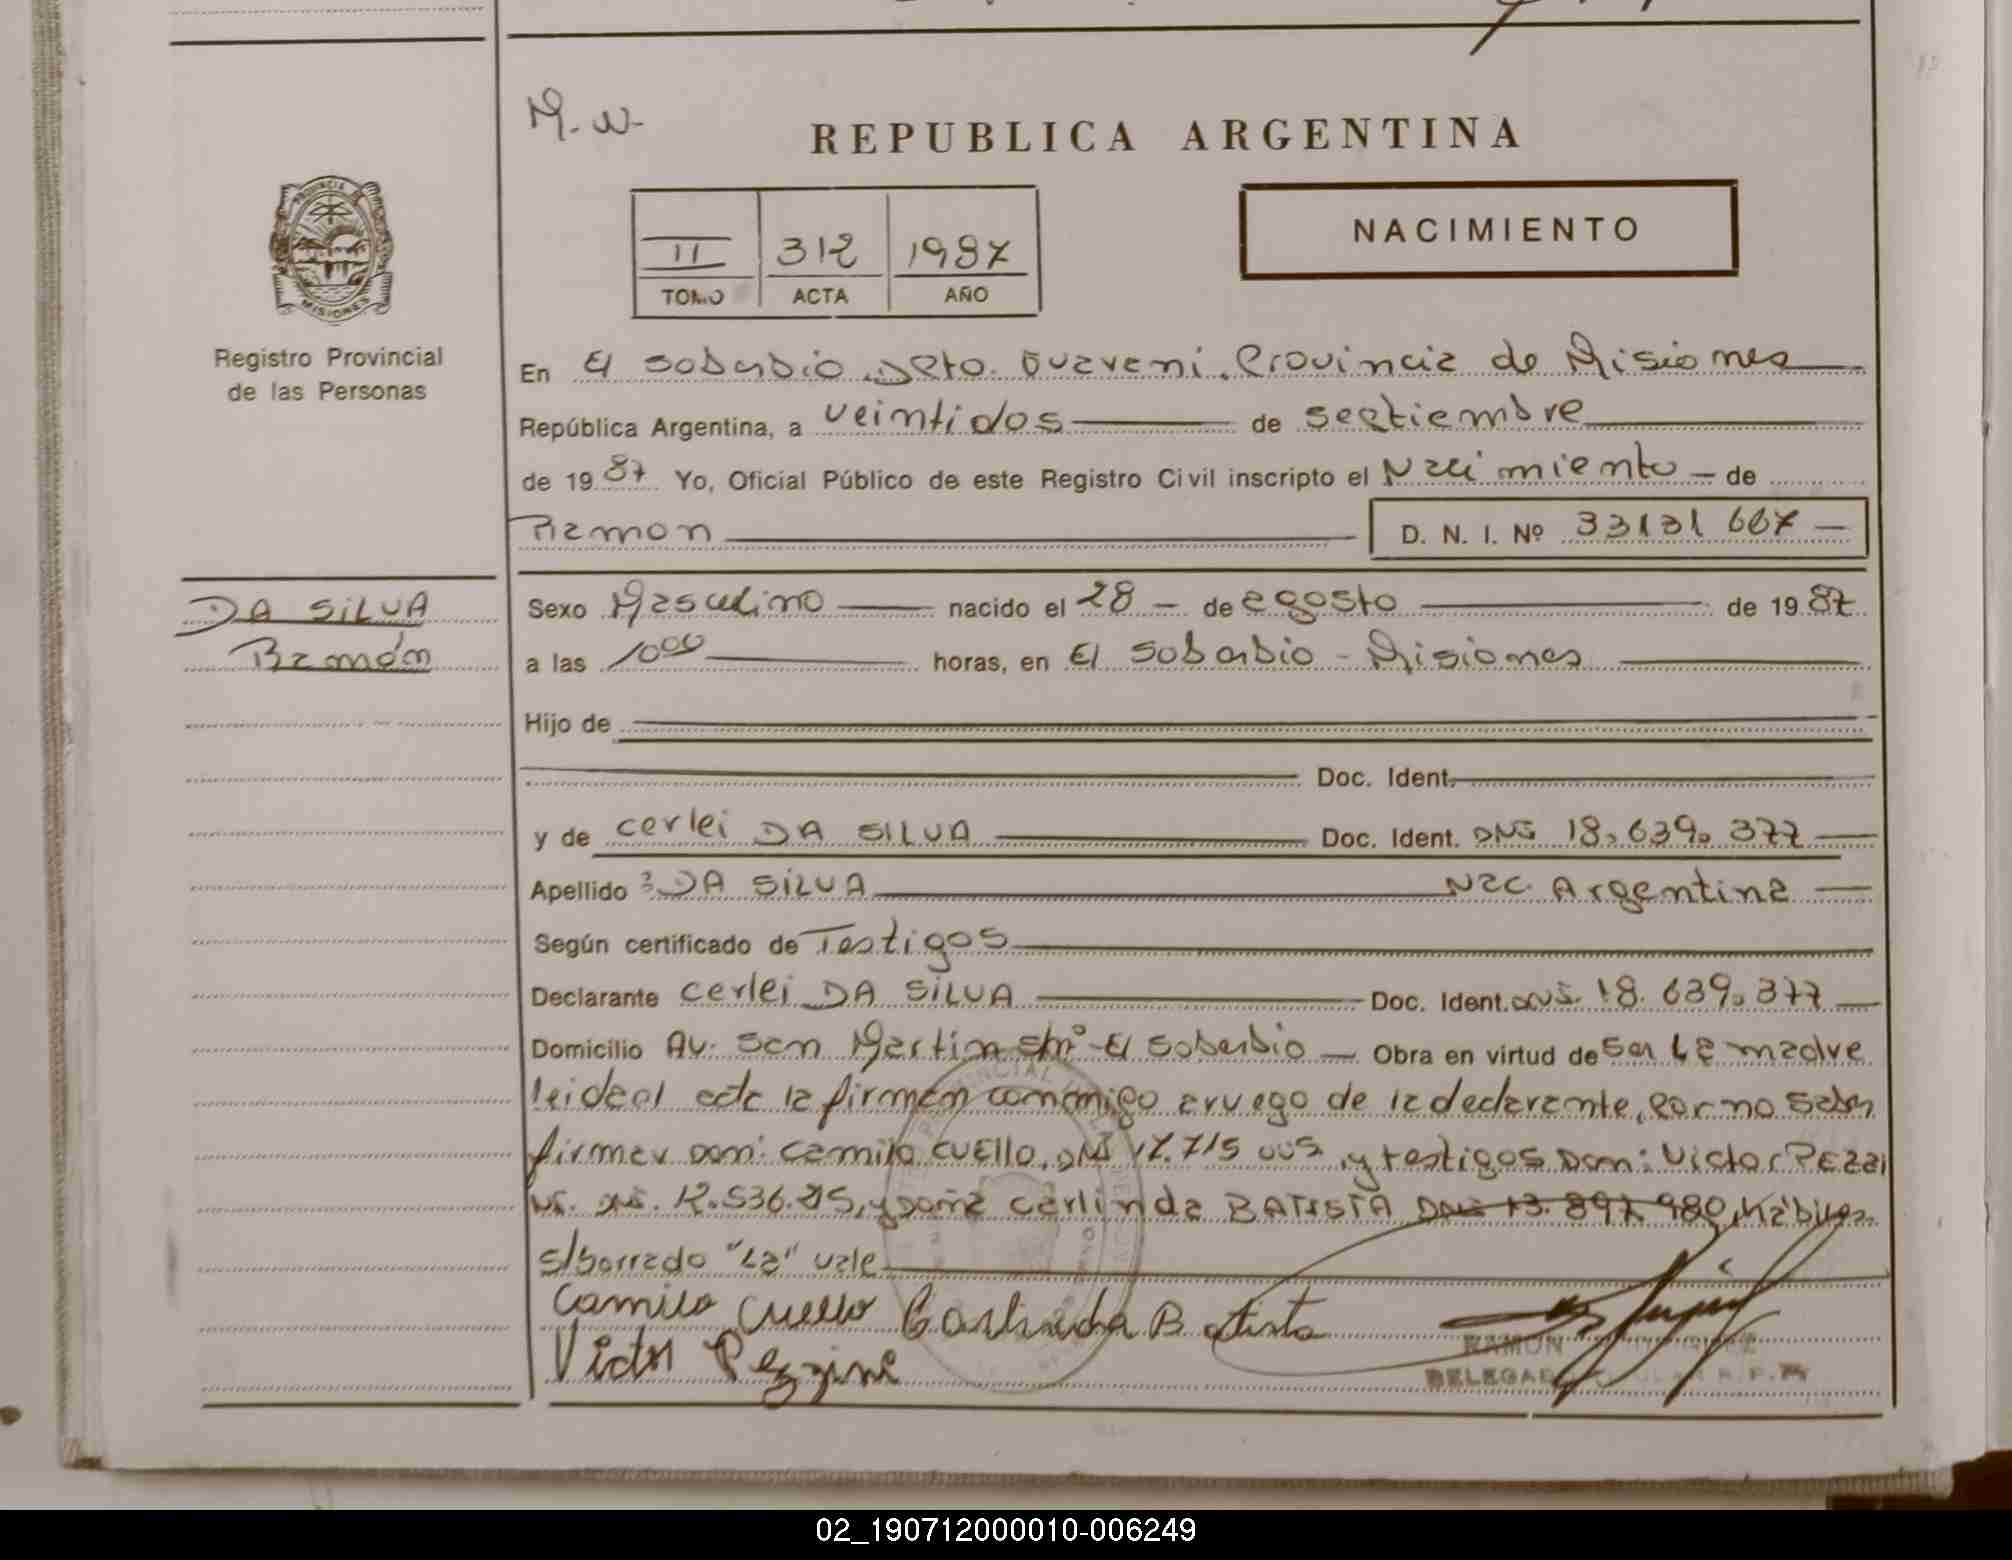 M.W.
REPUBLICA ARGENTINA
NACIMIENTO
II 312 1987
TOMO ACTA AÑO
PROVINCIA DE MISIONES
Registro Provincial
de las Personas
DA SILVA
Ramón
En El Soberbio, Dpto. Guaraní, Provincia de Misiones
República Argentina, a veintidos de septiembre
de 1987 Yo, Oficial Público de este Registro Civil inscripto el Nacimiento de
Ramon D. N. I. Nº 33131667
Sexo Masculino nacido el 28 de agosto de 1987
a las 10°° horas, en El Soberbio - Misiones
Hijo de
Doc. Ident.
y de Cerlei DA SILVA Doc. Ident. DNI 18.639.377
Apellido DA SILVA Nac. Argentina
Según certificado de Testigos
Declarante Cerlei DA SILVA Doc. Ident. DNI. 18.639.377
Domicilio Av. San Martin s/nº El Soberbio Obra en virtud de ser La madre
leida el acta la firman conmigo a ruego de la declarante, por no saber
firmar don: Camilo CUELLO, DNI 17.715 005 y testigos Don: Victor PEZZI
NI. DNI. 12.536.215, y doña Carlinda BATISTA DNI 13.897.980, Hábiles.
s/borrado "La" vale
Camilo Cuello Carlinda Batista
Victor Pezzini
RAMON
DELEGADO TITULAR R.P.P.
02_190712000010-006249